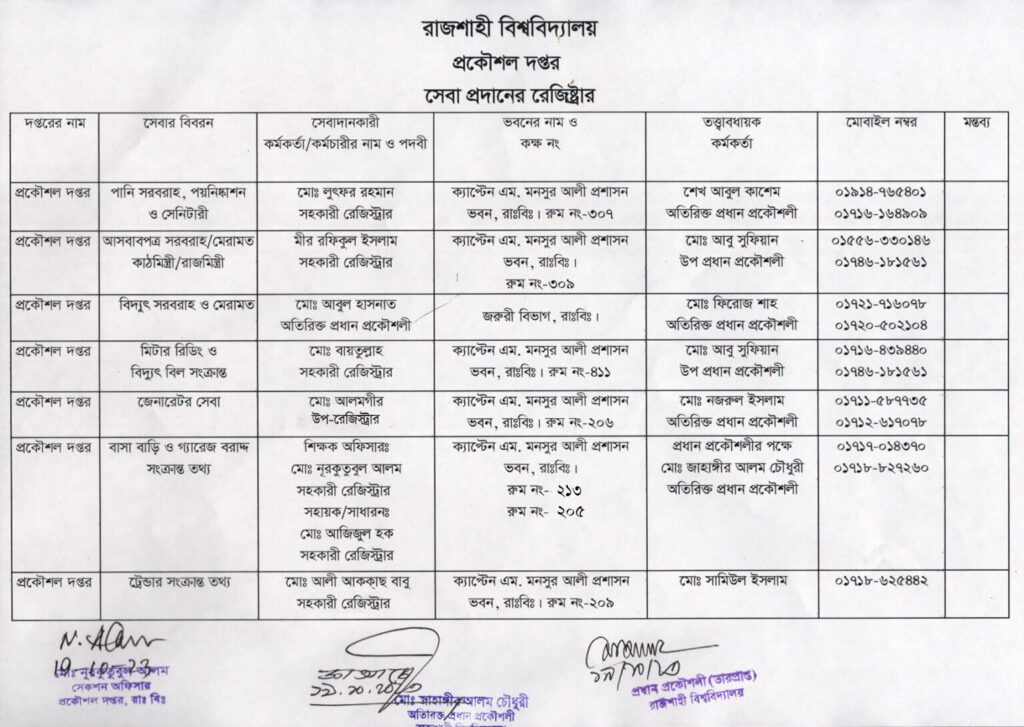 রাজশাহী বিশ্ববিদ্যালয়
প্রকৌশল দপ্তর
সেবা প্রদানের রেজিষ্ট্রার
দপ্তরের নাম
সেবার বিবরন
সেবাদানকারী
কর্মকর্তা/কর্মচারীর নাম ও পদবী
ভবনের নাম ও
কক্ষ নং
তত্ত্বাবধায়ক
কর্মকর্তা
মোবাইল নম্বর
মন্তব্য
প্রকৌশল দপ্তর
পানি সরবরাহ, পয়নিষ্কাশন
ও সেনিটারী
মোঃ লুৎফর রহমান
সহকারী রেজিস্ট্রার
ক্যাপ্টেন এম. মনসুর আলী প্রশাসন
ভবন, রাঃবিঃ। রুম নং-৩০৭
শেখ আবুল কাশেম
অতিরিক্ত প্রধান প্রকৌশলী
০১৯১৪-৭৬৫৪০১
০১৭১৬-১৬৪৯০৯
প্রকৌশল দপ্তর
আসবাবপত্র সরবরাহ/মেরামত
কাঠমিস্ত্রী/রাজমিস্ত্রী
মীর রফিকুল ইসলাম
সহকারী রেজিস্ট্রার
ক্যাপ্টেন এম. মনসুর আলী প্রশাসন
ভবন, রাঃবিঃ।
রুম নং-৩০৯
মোঃ আবু সুফিয়ান
উপ প্রধান প্রকৌশলী
০১৫৫৬-৩৩০১৪৬
০১৭৪৬-১৮১৫৬১
প্রকৌশল দপ্তর
বিদ্যুৎ সরবরাহ ও মেরামত
মোঃ আবুল হাসনাত
অতিরিক্ত প্রধান প্রকৌশলী
জরুরী বিভাগ, রাঃবিঃ।
মোঃ ফিরোজ শাহ
অতিরিক্ত প্রধান প্রকৌশলী
০১৭২১-৭১৬০৭৮
০১৭২০-৫০২১০৪
প্রকৌশল দপ্তর
মিটার রিডিং ও
বিদ্যুৎ বিল সংক্রান্ত
মোঃ বায়তুল্লাহ
সহকারী রেজিস্ট্রার
ক্যাপ্টেন এম. মনসুর আলী প্রশাসন
ভবন, রাঃবিঃ। রুম নং-৪১১
মোঃ আবু সুফিয়ান
উপ প্রধান প্রকৌশলী
০১৭১৬-৪৩৯৪৪০
০১৭৪৬-১৮১৫৬১
প্রকৌশল দপ্তর
জেনারেটর সেবা
মোঃ আলমগীর
উপ-রেজিস্ট্রার
ক্যাপ্টেন এম. মনসুর আলী প্রশাসন
ভবন, রাঃবিঃ। রুম নং-২০৬
মোঃ নজরুল ইসলাম
অতিরিক্ত প্রধান প্রকৌশলী
০১৭১১-৫৮৭৭৩৫
০১৭১২-৬১৭০৭৮
প্রকৌশল দপ্তর
বাসা বাড়ি ও গ্যারেজ বরাদ্দ
সংক্রান্ত তথ্য
শিক্ষক অফিসারঃ
মোঃ নূরকুতুবুল আলম
সহকারী রেজিস্ট্রার
সহায়ক/সাধারনঃ
মোঃ আজিজুল হক
সহকারী রেজিস্ট্রার
ক্যাপ্টেন এম. মনসুর আলী প্রশাসন
ভবন, রাঃবিঃ।
রুম নং- ২১৩
রুম নং- ২০৫
প্রধান প্রকৌশলীর পক্ষে
মোঃ জাহাঙ্গীর আলম চৌধুরী
অতিরিক্ত প্রধান প্রকৌশলী
০১৭১৭-০১৪৩৭০
০১৭১৮-৮২৭২৬০
প্রকৌশল দপ্তর
ট্রেন্ডার সংক্রান্ত তথ্য
মোঃ আলী আককাছ বাবু
সহকারী রেজিস্ট্রার
ক্যাপ্টেন এম. মনসুর আলী প্রশাসন
ভবন, রাঃবিঃ। রুম নং-২০৯
মোঃ সামিউল ইসলাম
০১৭১৮-৬২৫৪৪২
N. Alam
19-10-23
মোঃ নূরকুতুবুল আলম
সেকশন অফিসার
প্রকৌশল দপ্তর, রাঃ বিঃ
১৯.১০.২০২৩
মোঃ জাহাঙ্গীর আলম চৌধুরী
অতিরিক্ত প্রধান প্রকৌশলী
১৯/১০/২৩
প্রধান প্রকৌশলী (ভারপ্রাপ্ত)
রাজশাহী বিশ্ববিদ্যালয়